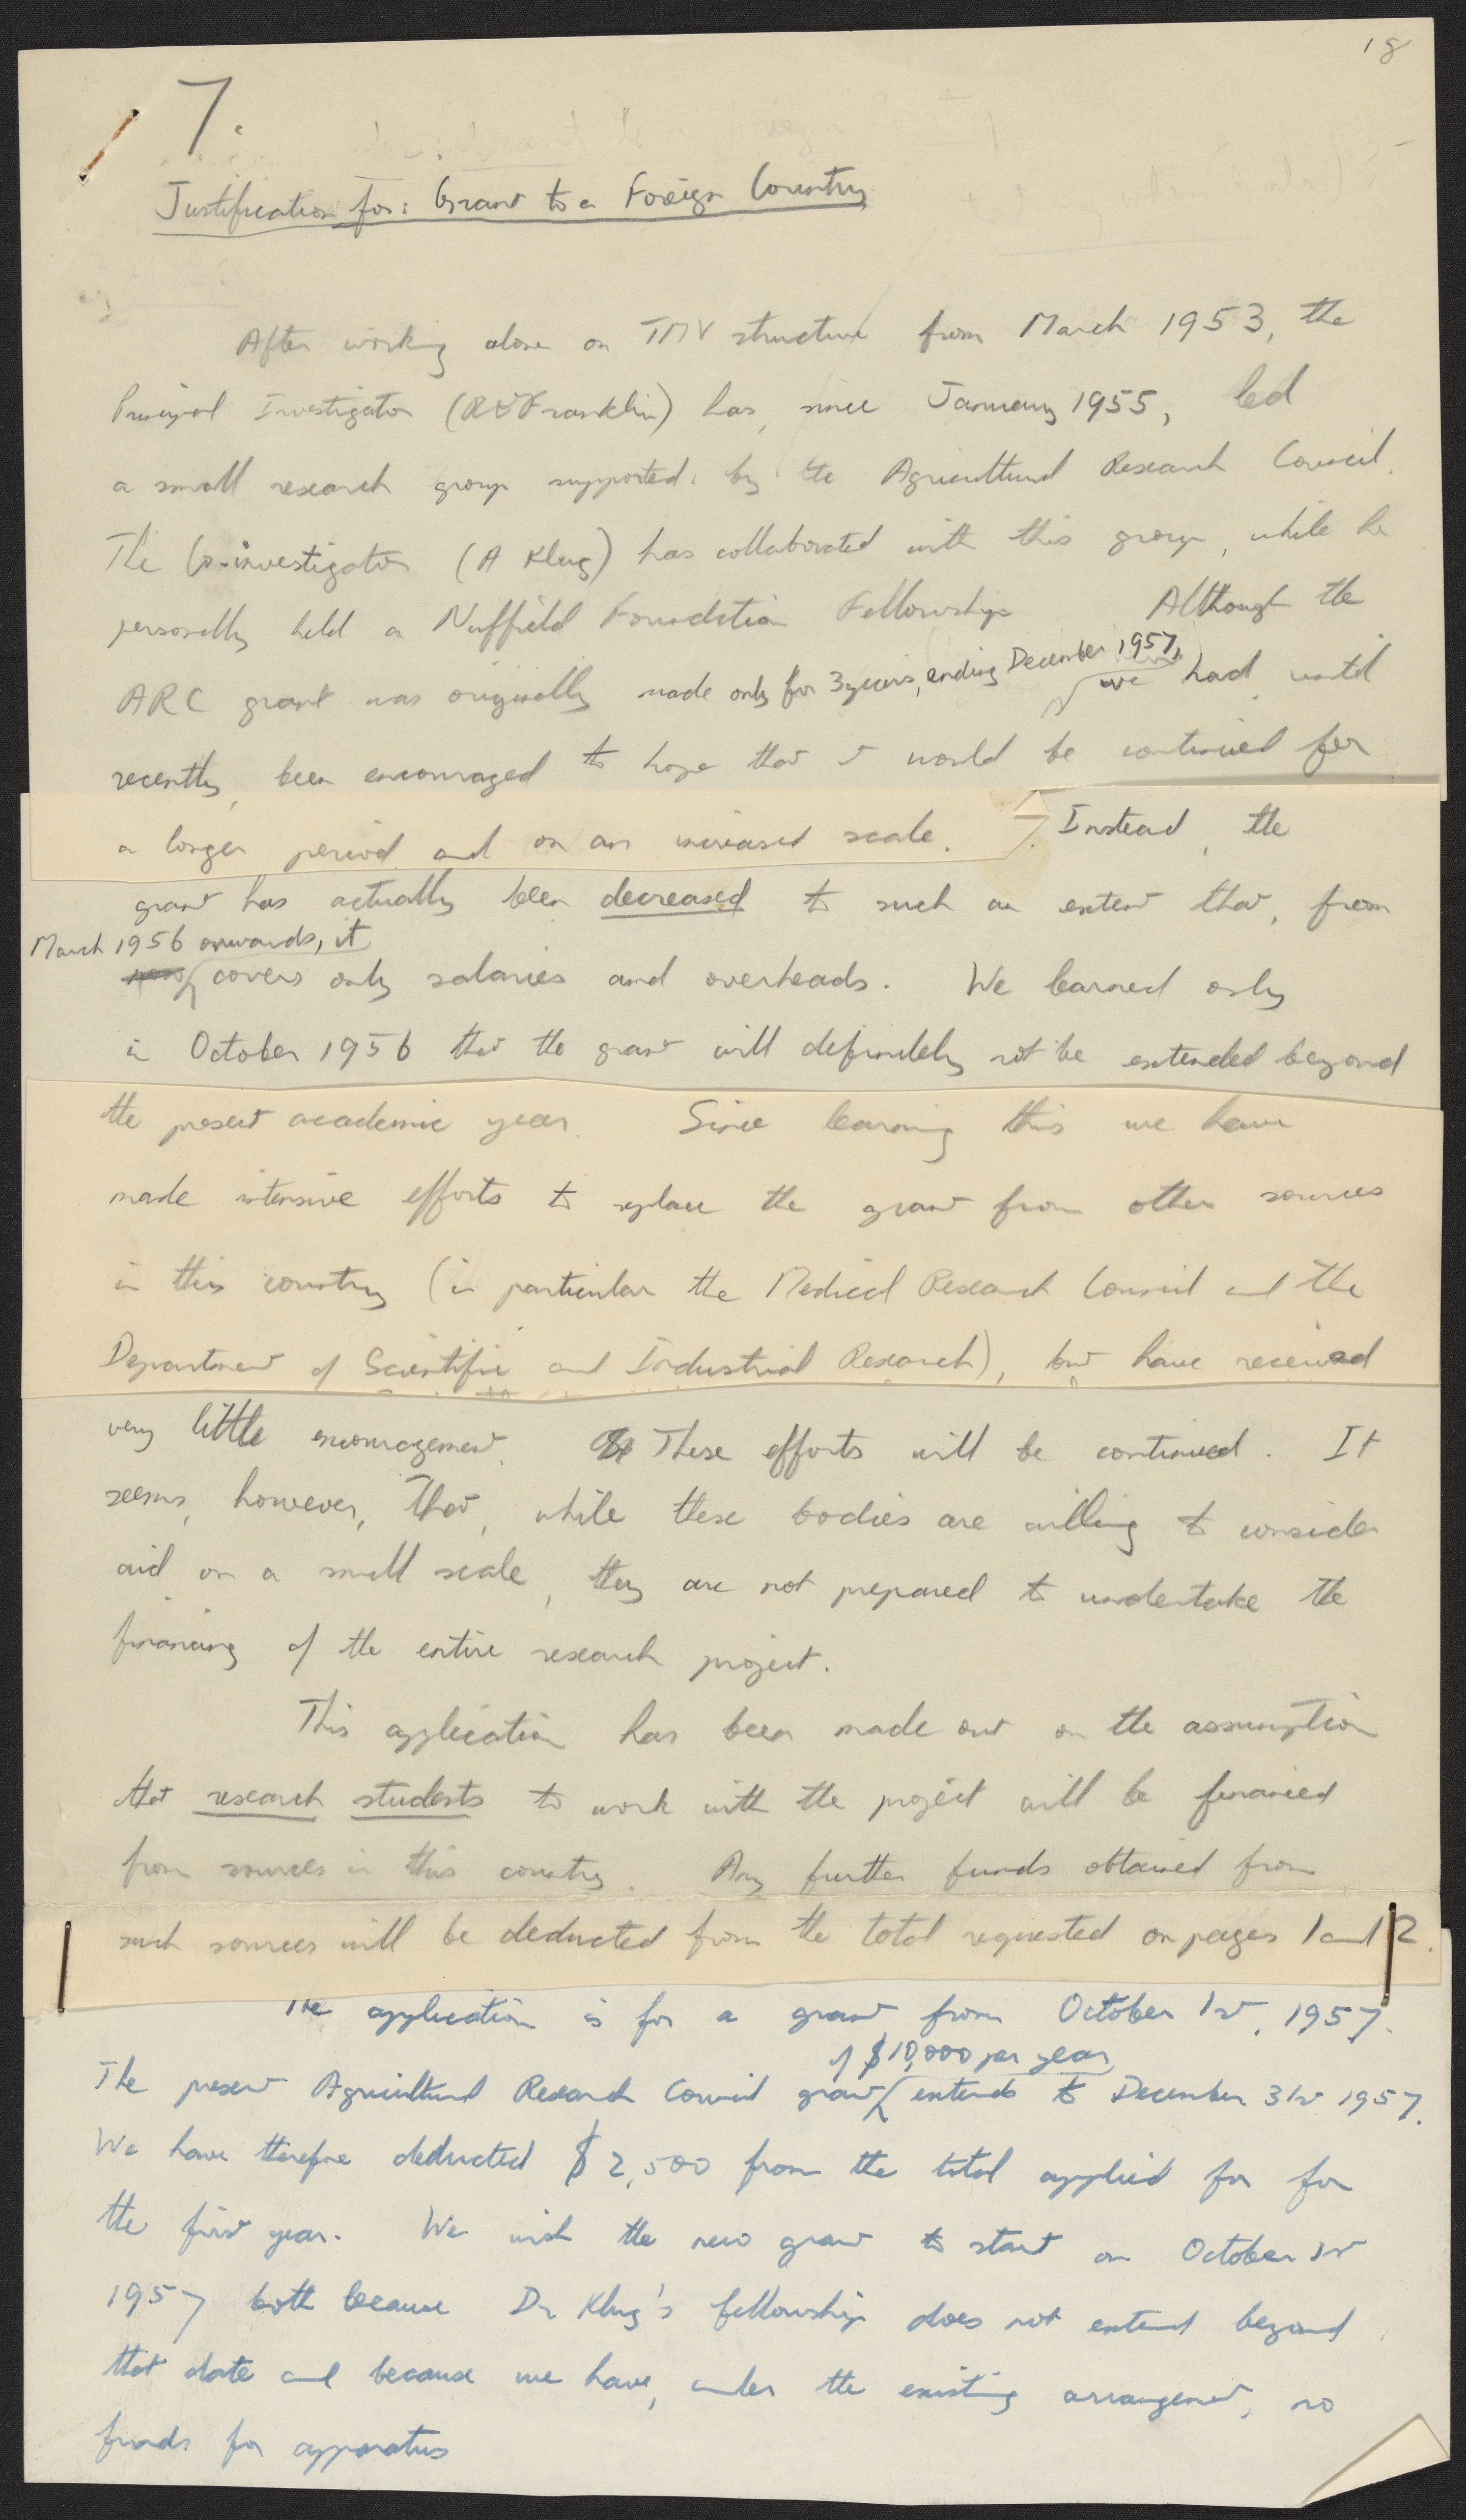 18
7.
Justification for: Grant to a Foreign Country
After working alone on TMV structure from March 1953, the
Principal Investigator (R E Franklin) has, since January 1955, led
a small research group supported by the Agricultural Research Council.
The Co-investigator (A Klug) has collaborated with this group, while he
personally held a Nuffield Foundation Fellowship Although the
ARC grant was originally made only for 3 years, ending December 1957, we had until
recently, been encouraged to hope that it would be continued for
a longer period and on an increased scale. Instead, the
grant has actually been decreased to such an extent that, from
March 1956 onwards, it
covers only salaries and overheads. We learned only
in October 1956 that the grant will definitely not be extended beyond
the present academic year. Since learning this we have
made intensive efforts to replace the grant from other sources
in this country (in particular the Medical Research Council and the
Department of Scientific and Industrial Research), but have received
very little encouragement. These efforts will be continued. It
seems, however, that, while these bodies are willing to consider
aid on a small scale, they are not prepared to undertake the
financing of the entire research project.
This application has been made out on the assumption
that research students to work with the project will be financed
from sources in this country. Any further funds obtained from
such sources will be deducted from the total requested on pages 1 and 2.
The application is for a grant from October 1st, 1957.
of $10,000 per year
The present Agricultural Research Council grant extends to December 31st 1957.
We have therefore deducted $2,500 from the total applied for for
the first year. We wish the new grant to start on October 1st
1957 both because Dr Klug's fellowship does not extend beyond
that date and because we have, under the existing arrangement, no
funds for apparatus